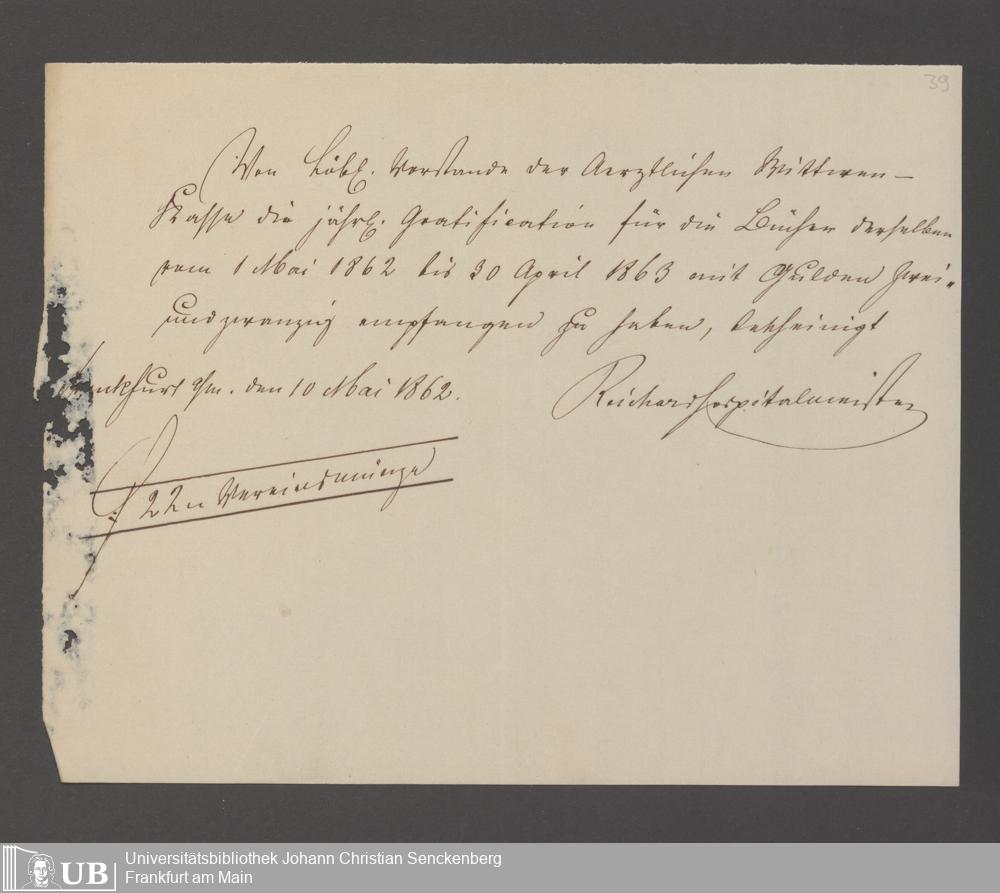 39
Von Löbl. Vorstande der Aerztlichen Wittwen-
Kasse die jährl. Gratification für die Bücher derselben
vom 1 Mai 1862 bis 30 April 1863 mit Gulden Zwei-
undzwanzig empfangen zu haben, bescheinigt
nkfurt a/m. den 10 Mai 1862.
Reichard Hospitalmeister
f 22 „ Vereinsmünze
UB
Universitätsbibliothek Johann Christian Senckenberg
Frankfurt am Main